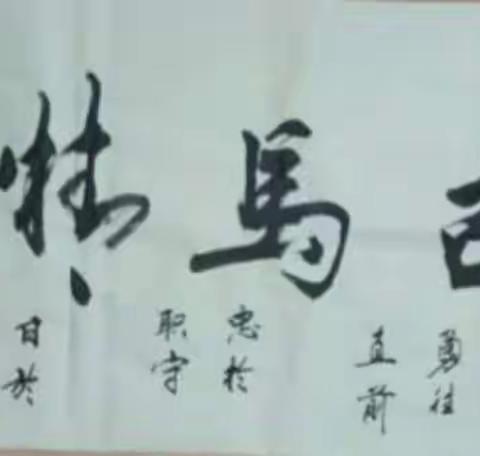 馬
勇往
直前
忠於
职守
甘於